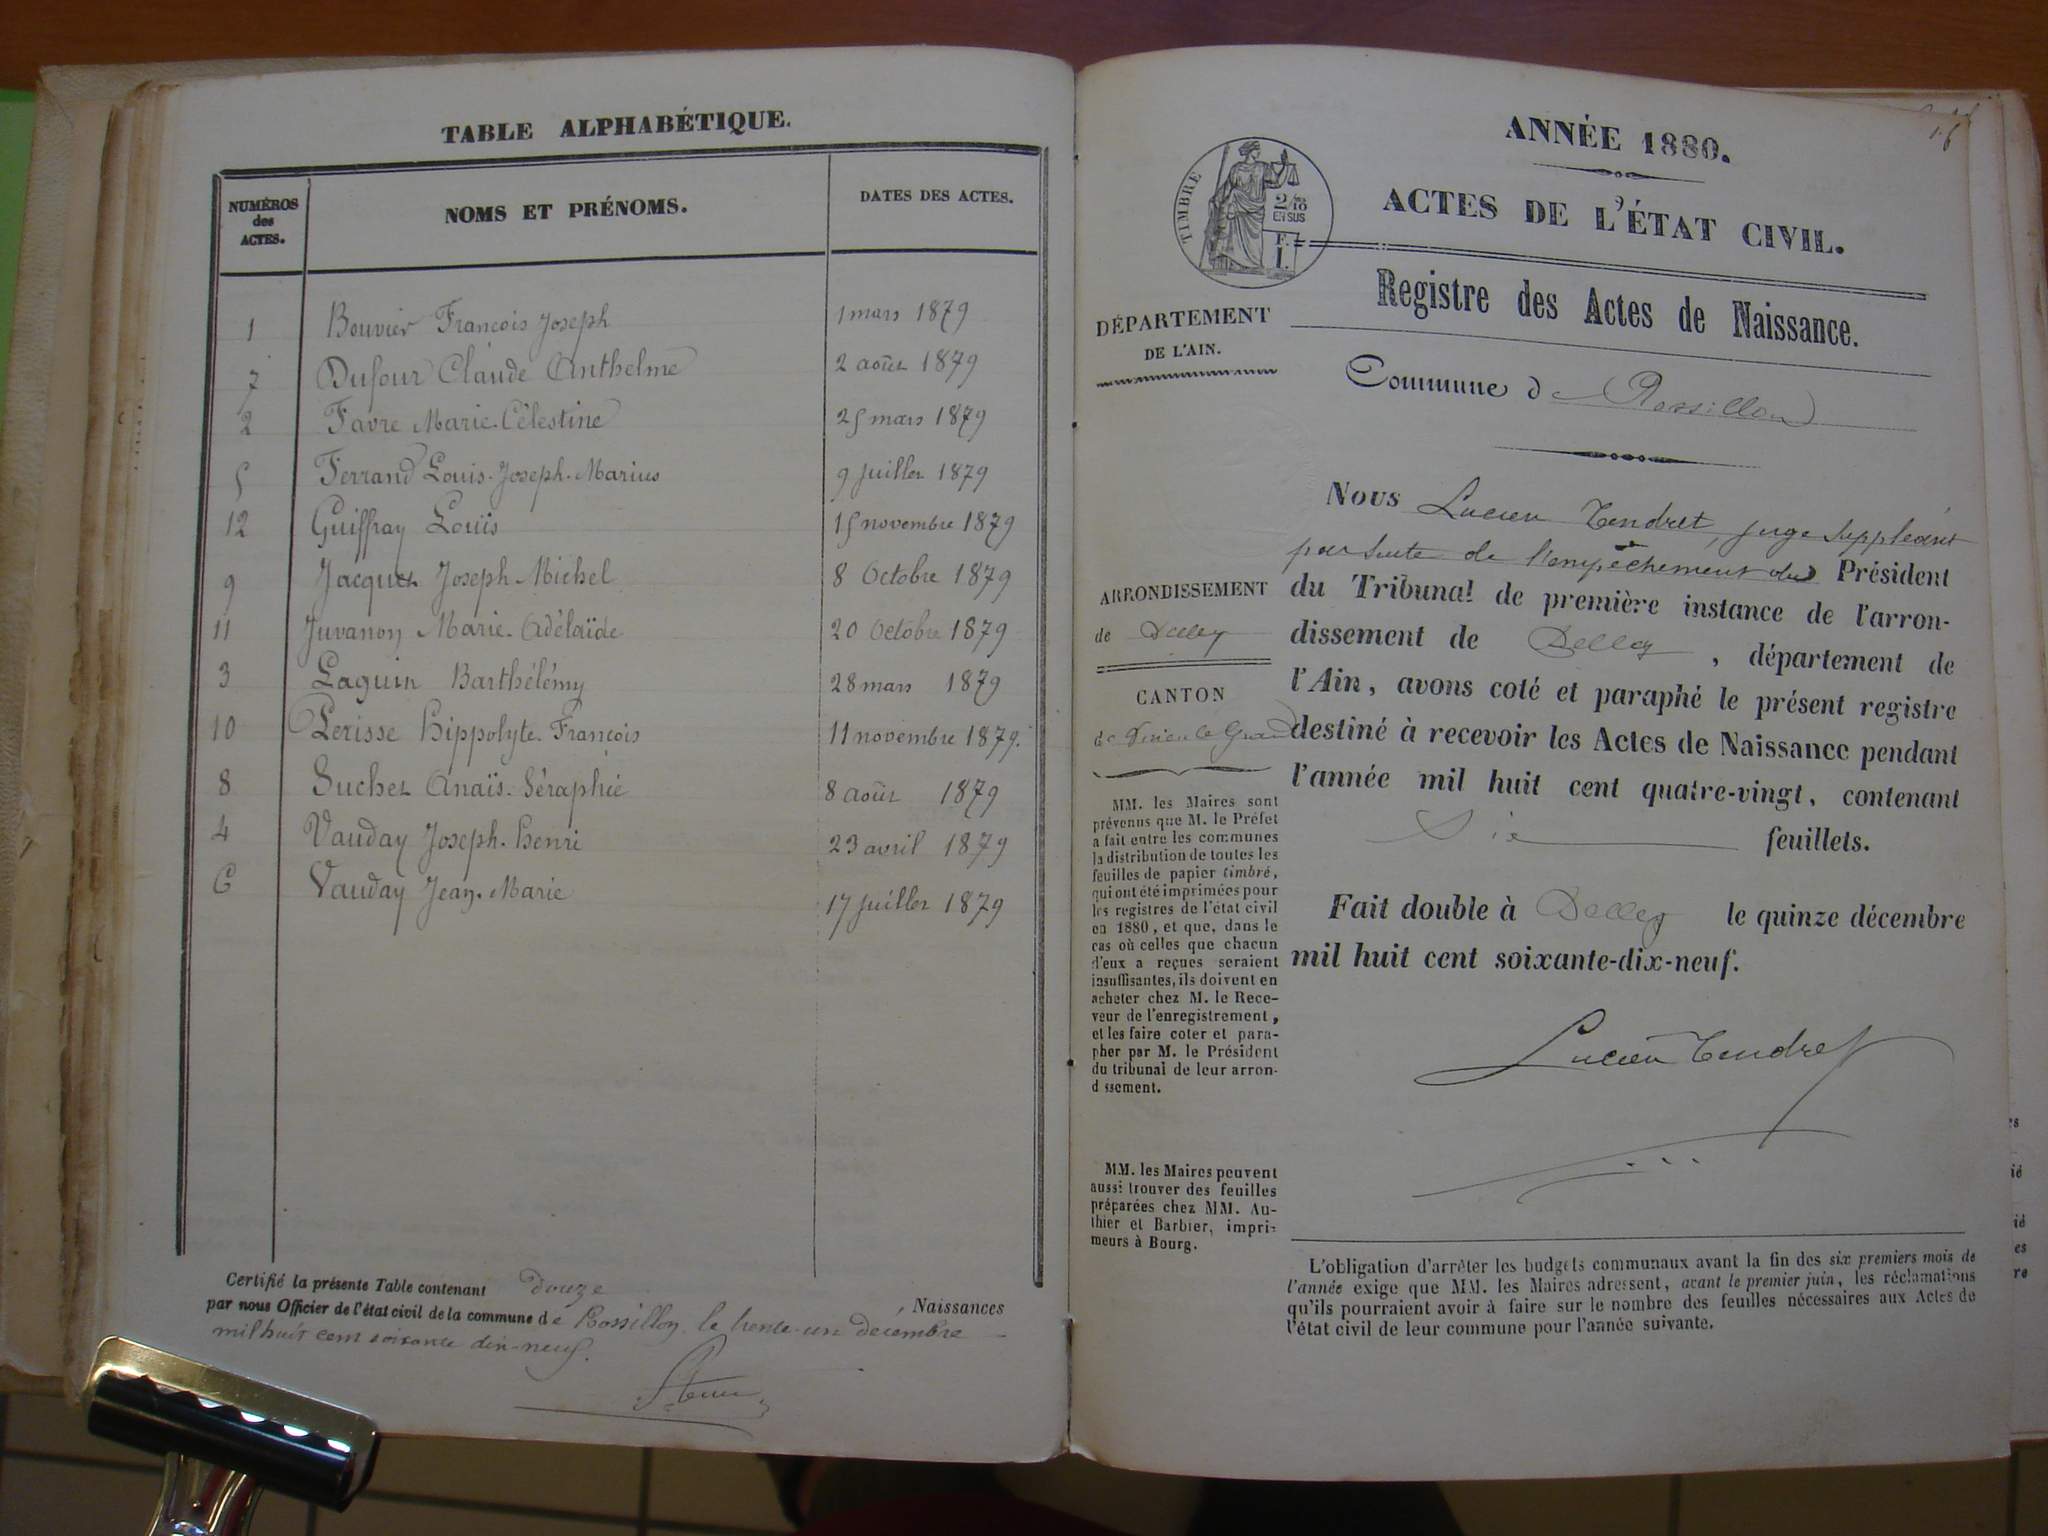 TABLE ALPHABÉTIQUE.
NUMÉROS des ACTES. NOMS ET PRÉNOMS. DATES DES ACTES.
1 Bouvier François Joseph 1 mars 1879
7 Dufour Claude Anthelme 2 août 1879
2 Favre Marie-Célestine 25 mars 1879
5 Ferrand Louis-Joseph-Marius 9 juillet 1879
12 Guiffray Louis 15 novembre 1879
9 Jacquet Joseph Michel 8 Octobre 1879
11 Juvanon Marie-Adélaïde 20 Octobre 1879
3 Laguin Barthélémy 28 mars 1879
10 Perisse Hippolyte-François 11 novembre 1879.
8 Suchet Anaïs-Séraphie 8 août 1879
4 Vauday Joseph-Henri 23 avril 1879
6 Vauday Jean-Marie 17 juillet 1879
Certifié la présente Table contenant douze Naissances
par nous Officier de l'état civil de la commune de Rossillon, le trente-un décembre
mil huit cent soixante dix-neuf.
ANNÉE 1880.
ACTES DE L'ÉTAT CIVIL.
TIMBRE
2/10
EN SUS
F.
1.
Registre des Actes de Naissance.
DÉPARTEMENT
DE L'AIN.
Commune de Rossillon
Nous Lucien Tendret, juge suppléant
par suite de l'empêchement du Président
du Tribunal de première instance de l'arron-
dissement de Belley, département de
l'Ain, avons coté et paraphé le présent registre
destiné à recevoir les Actes de Naissance pendant
l'année mil huit cent quatre-vingt, contenant
Six feuillets.
Fait double à Belley le quinze décembre
mil huit cent soixante-dix-neuf.
Lucien Tendret
ARRONDISSEMENT
de Belley
CANTON
de Virieu le Grand
MM. les Maires sont
prévenus que M. le Préfet
a fait entre les communes
la distribution de toutes les
feuilles de papier timbré,
qui ont été imprimées pour
les registres de l'état civil
en 1880, et que, dans le
cas où celles que chacun
d'eux a reçues seraient
insuffisantes, ils doivent en
acheter chez M. le Rece-
veur de l'enregistrement,
et les faire coter et para-
pher par M. le Président
du tribunal de leur arron-
dissement.
MM. les Maires peuvent
aussi trouver des feuilles
préparées chez MM. Au-
thier et Barbier, impri-
meurs à Bourg.
L'obligation d'arrêter les budgets communaux avant la fin des six premiers mois de
l'année exige que MM. les Maires adressent, avant le premier juin, les réclamations
qu'ils pourraient avoir à faire sur le nombre des feuilles nécessaires aux Actes de
l'état civil de leur commune pour l'année suivante.